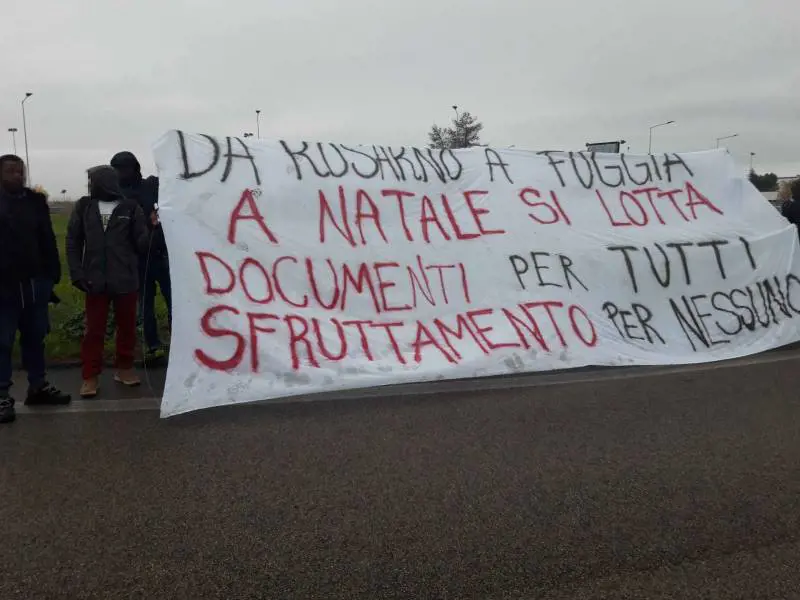 DA ROSARNO A FOGGIA
A NATALE SI LOTTA
DOCUMENTI PER TUTTI
SFRUTTAMENTO PER NESSUNO